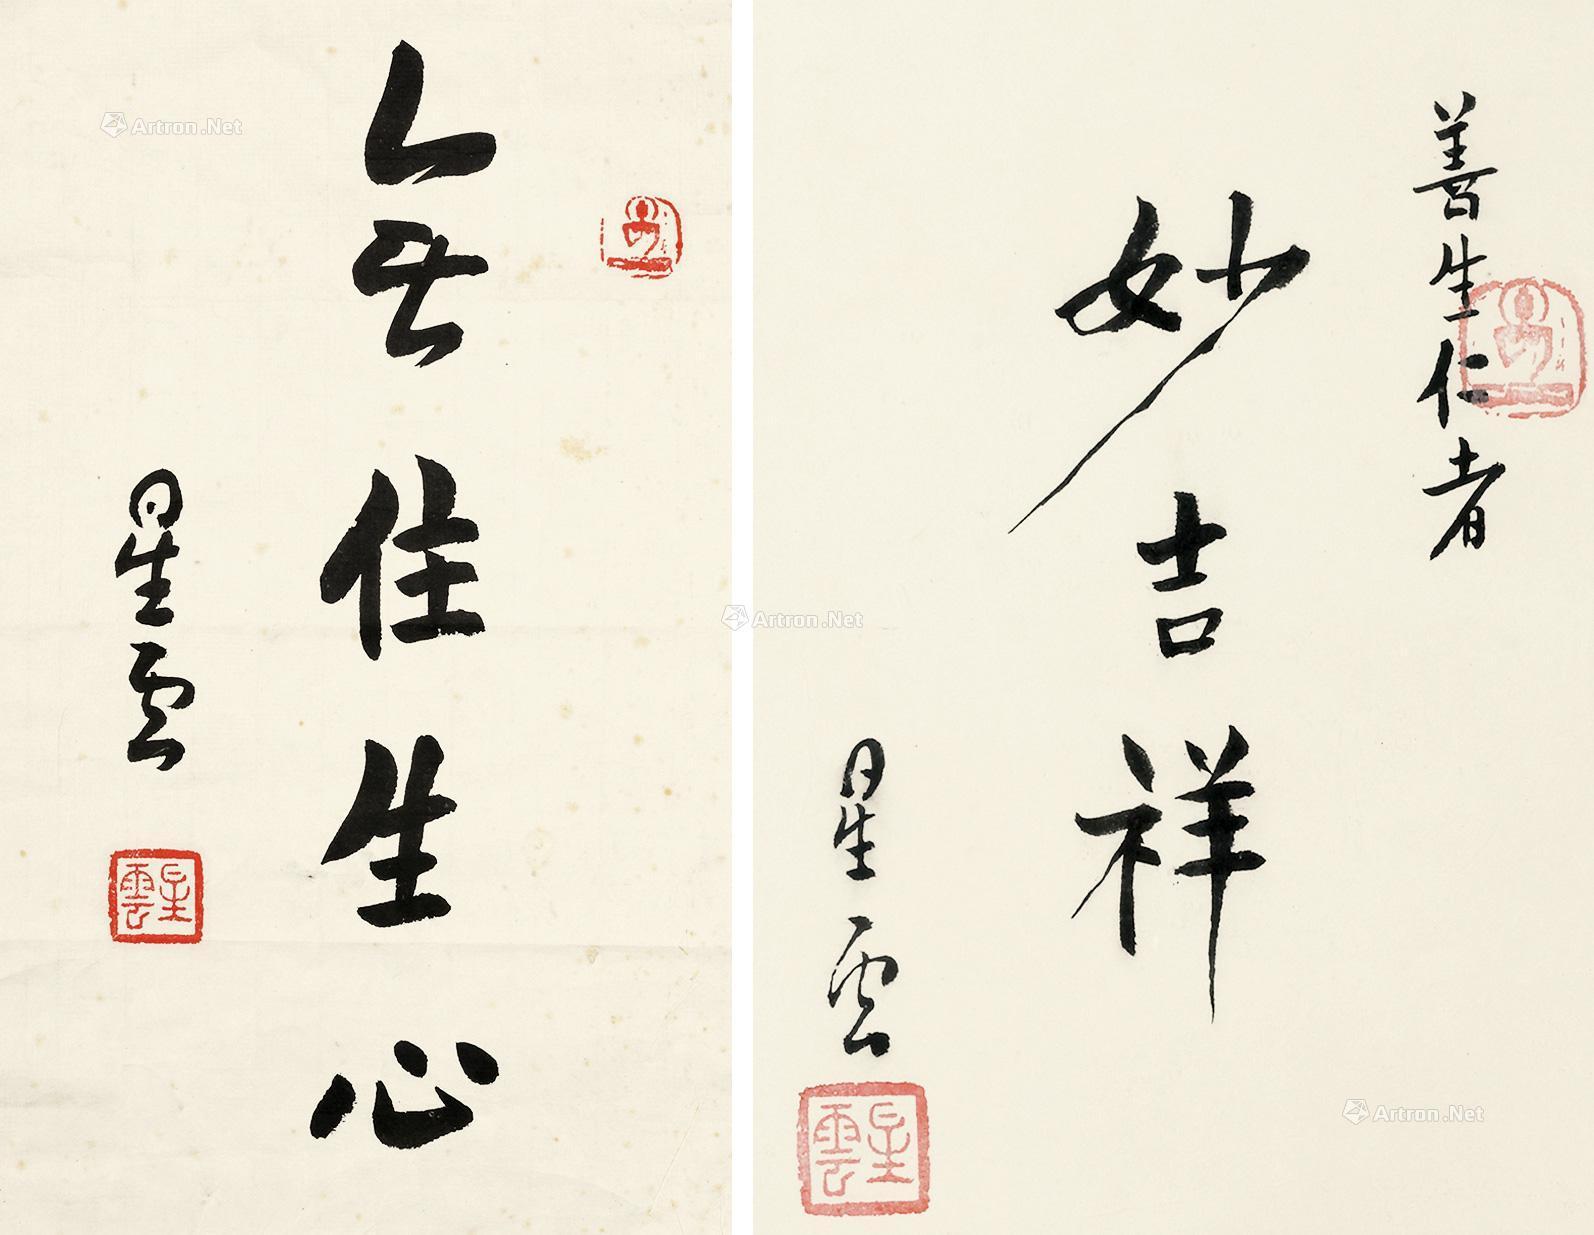 無住生心
星雲
星雲
善生仁者
妙吉祥
星雲
星雲
Artron.Net
Artron.Net
Artron.Net